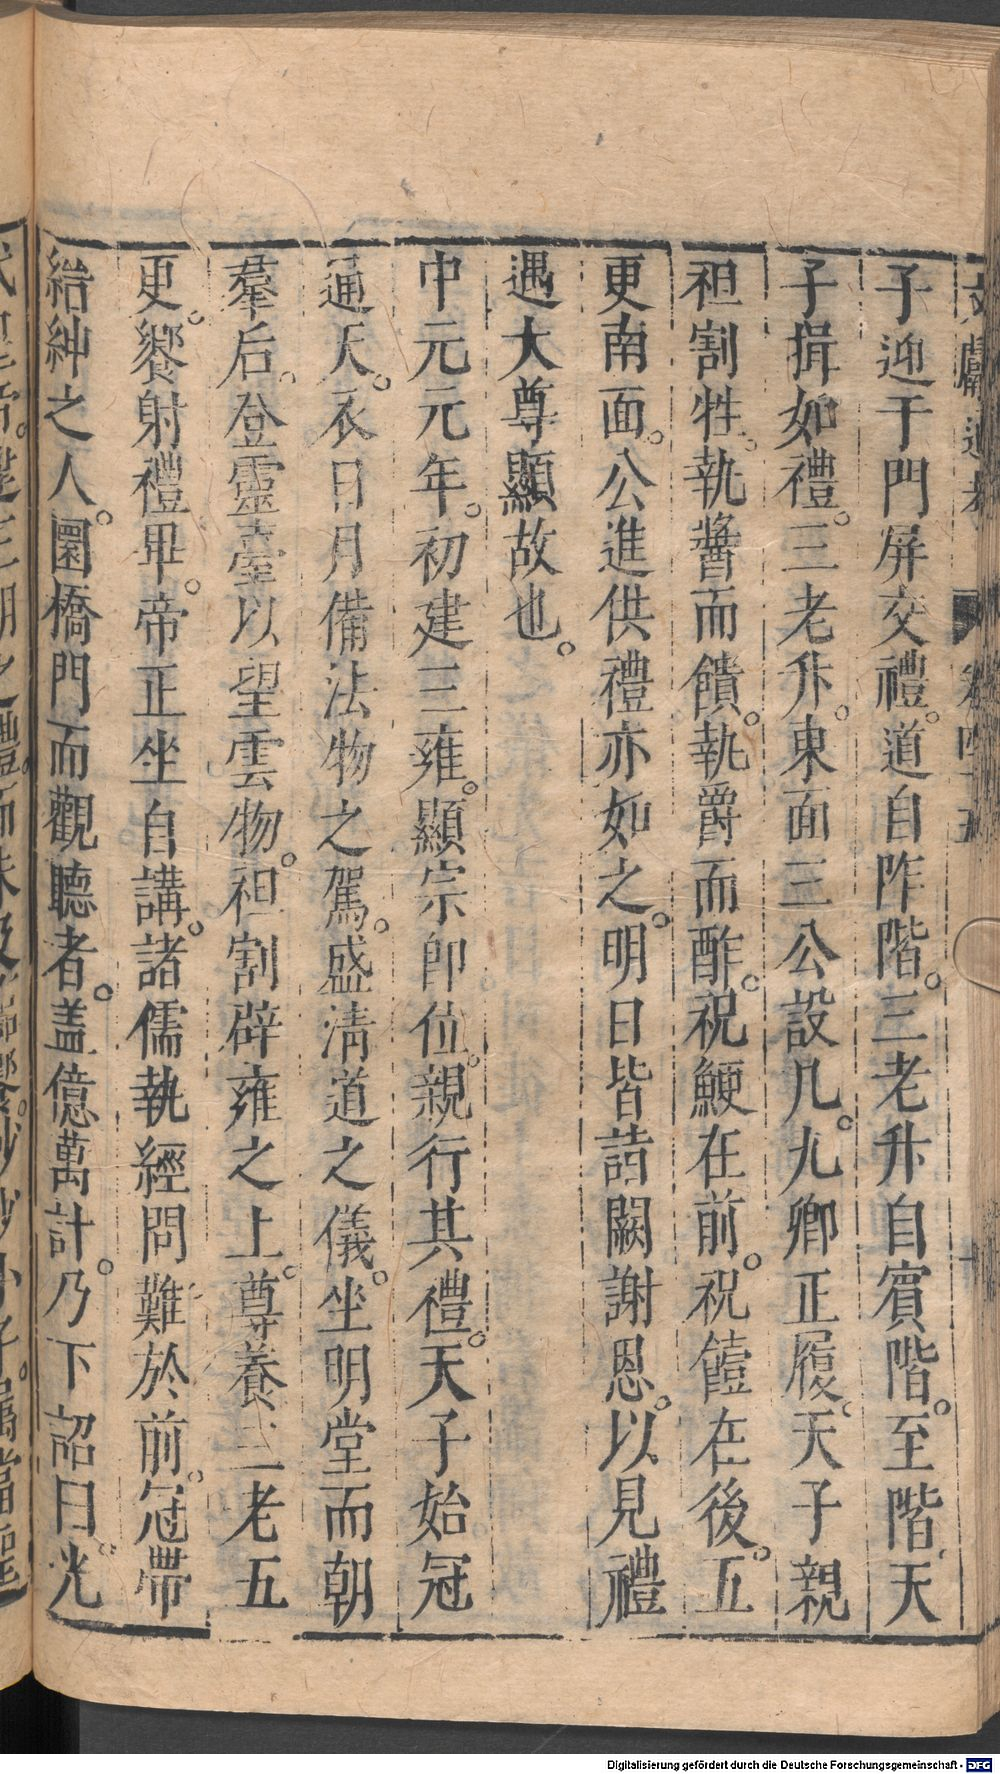 子迎于門屏交禮。道自阼階。三老升自賓階。至階。天
子揖如禮。三老升。東面三公設几。九卿正履。天子親
袒割牲。執醬而饋。執爵而酳。祝鯁在前。祝饐在後。五
更南面。公進供禮亦如之。明日皆詣闕謝恩。以見禮
遇大尊顯故也。
中元元年。初建三雍。顯宗卽位。親行其禮。天子始冠
通天。衣日月備法物之駕。盛淸道之儀。坐明堂而朝
羣后。登靈臺以望雲物。袒割辟雍之上。尊養三老五
更。饗射禮畢。帝正坐自講。諸儒執經問難於前。冠帶
縉紳之人。圜橋門而觀聽者。盖億萬計。乃下詔曰。光
Digitalisierung gefördert durch die Deutsche Forschungsgemeinschaft - DFG